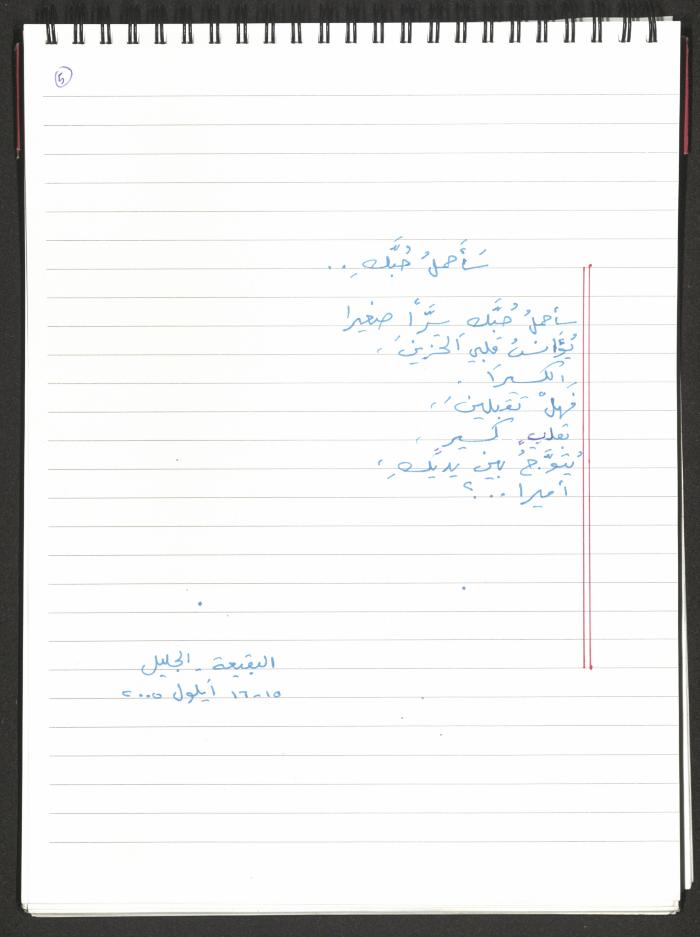 ٥
سَأَحملُ حُبَّكِ ..
سأحملُ حُبَّك سِرَّاً صغيرا
يُؤَانسُ قلبي اَلحَزينَ ،
اَلكسيرَا .
فَهلْ تقبلينَ ،
بقلبٍ كسير ،
يُتَوَّجُ بين يديَّكِ ،
أميرا ...؟
البقيعة - الجليل
١٥-١٦ أيلول ٢٠٠٥